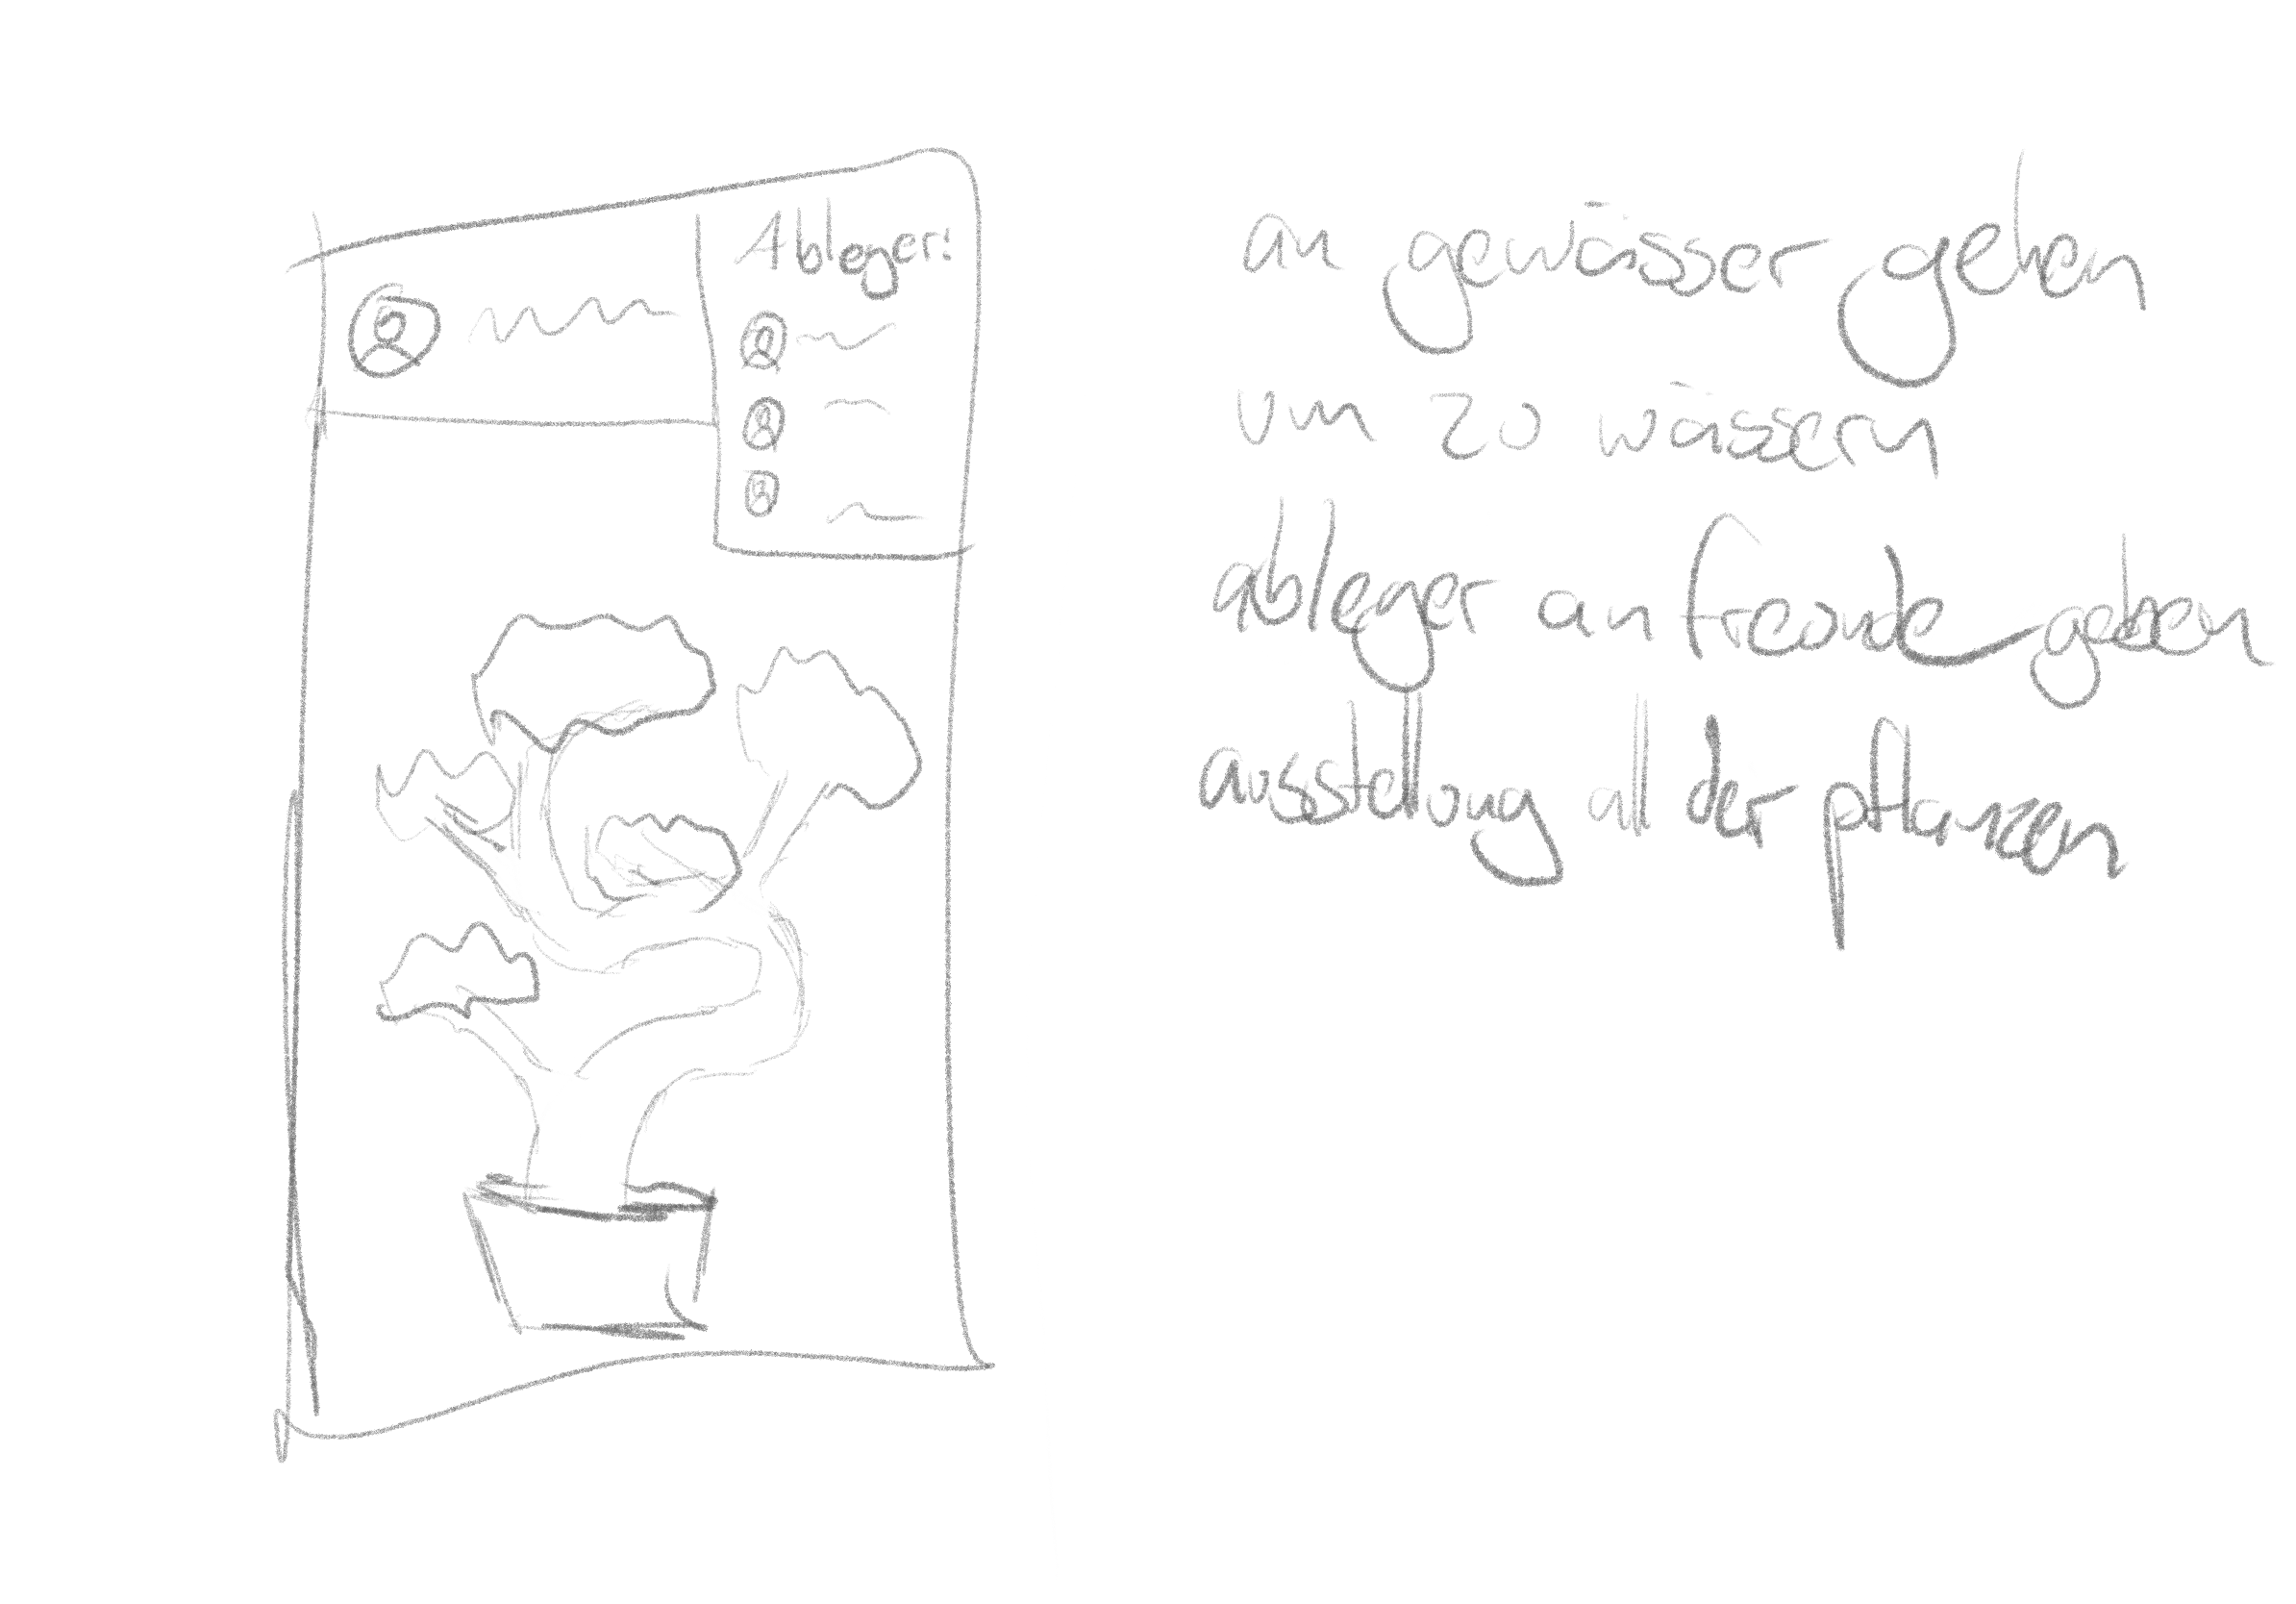 Ableger:
an gewässer gehen
um zu wässern
ableger an freunde geben
ausstellung all der pflanzen